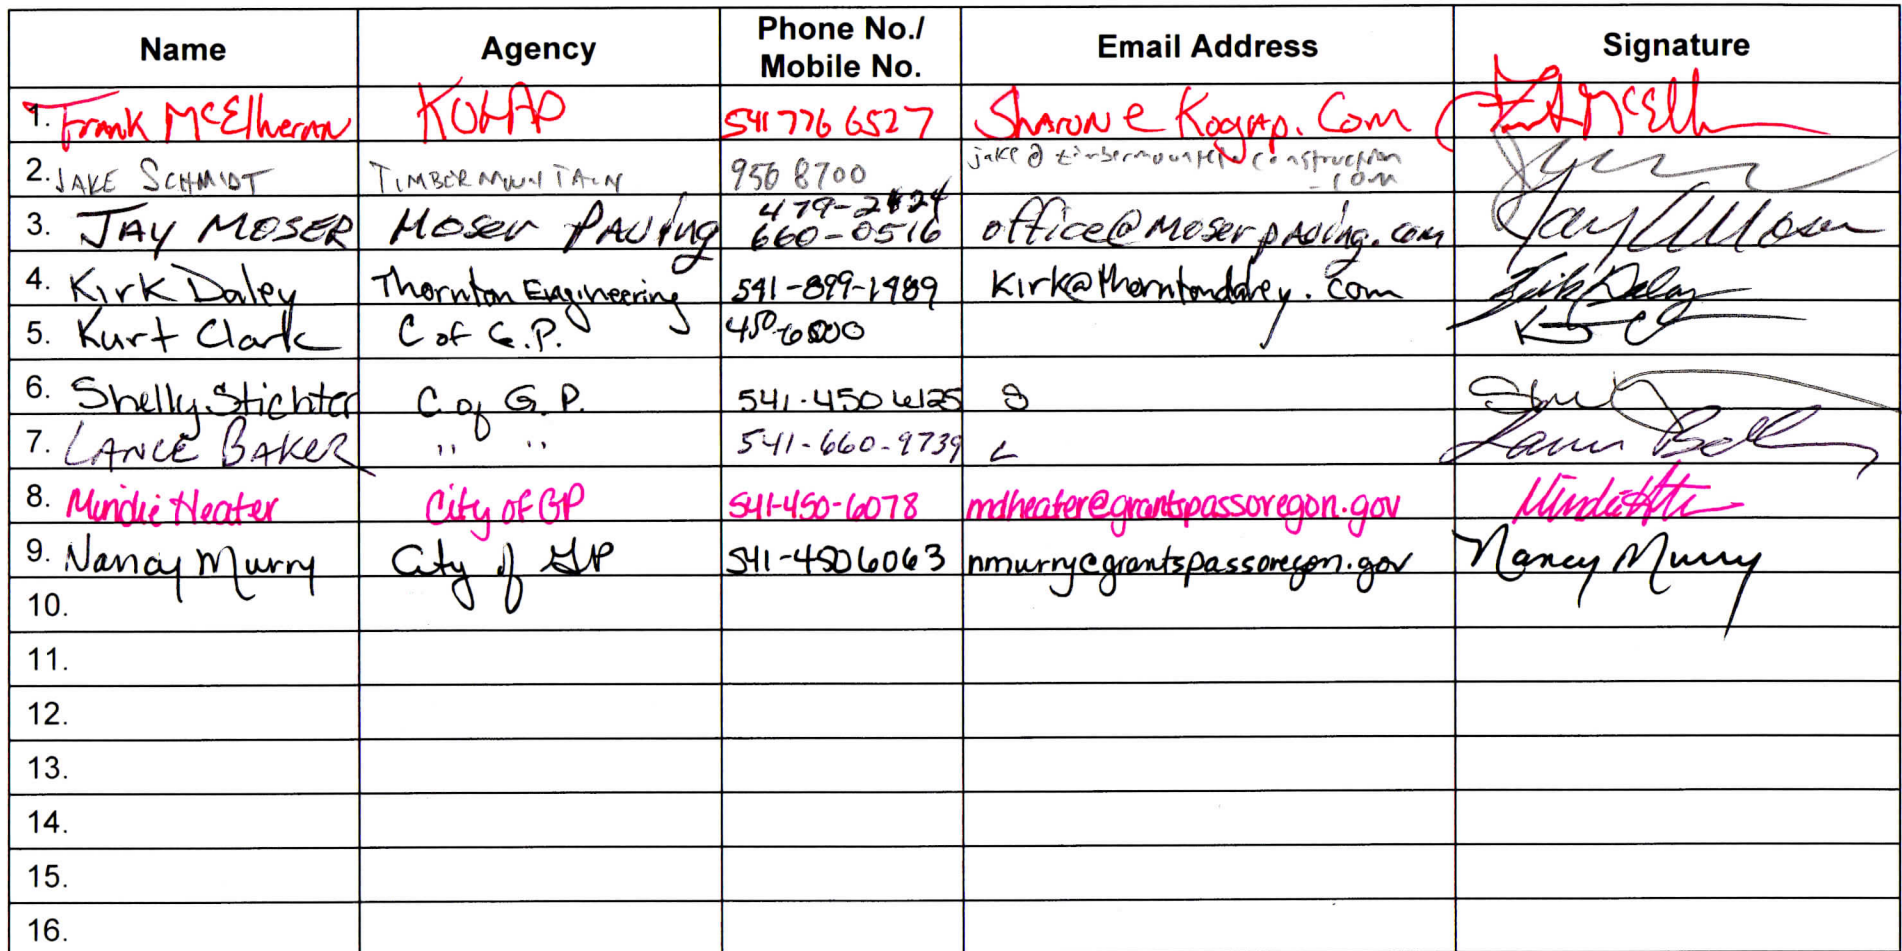 Name Agency Phone No./ Mobile No. Email Address Signature
1. Frank McElheran KOGAP 541 776 6527 Sharon@Kogap.Com
2. JAKE SCHMIDT TIMBER MOUNTAIN 956 8700 jake@timbermountainconstruction.com
3. JAY MOSER MOSER PAVING 479-2424 660-0516 office@moserpaving.com Jay Moser
4. Kirk Daley Thornton Engineering 541-899-1489 Kirk@thorntondaley.com Kirk Daley
5. Kurt Clark C of G.P. 450-6000
6. Shelly Stichter C of G.P. 541-450 6125
7. LANCE BAKER " " 541-660-9739
8. Mindie Heater City of GP 541-450-6078 mdheater@grantspassoregon.gov
9. Nancy Murry City of GP 541-450 6063 nmurry@grantspassoregon.gov Nancy Murry
10.
11.
12.
13.
14.
15.
16.